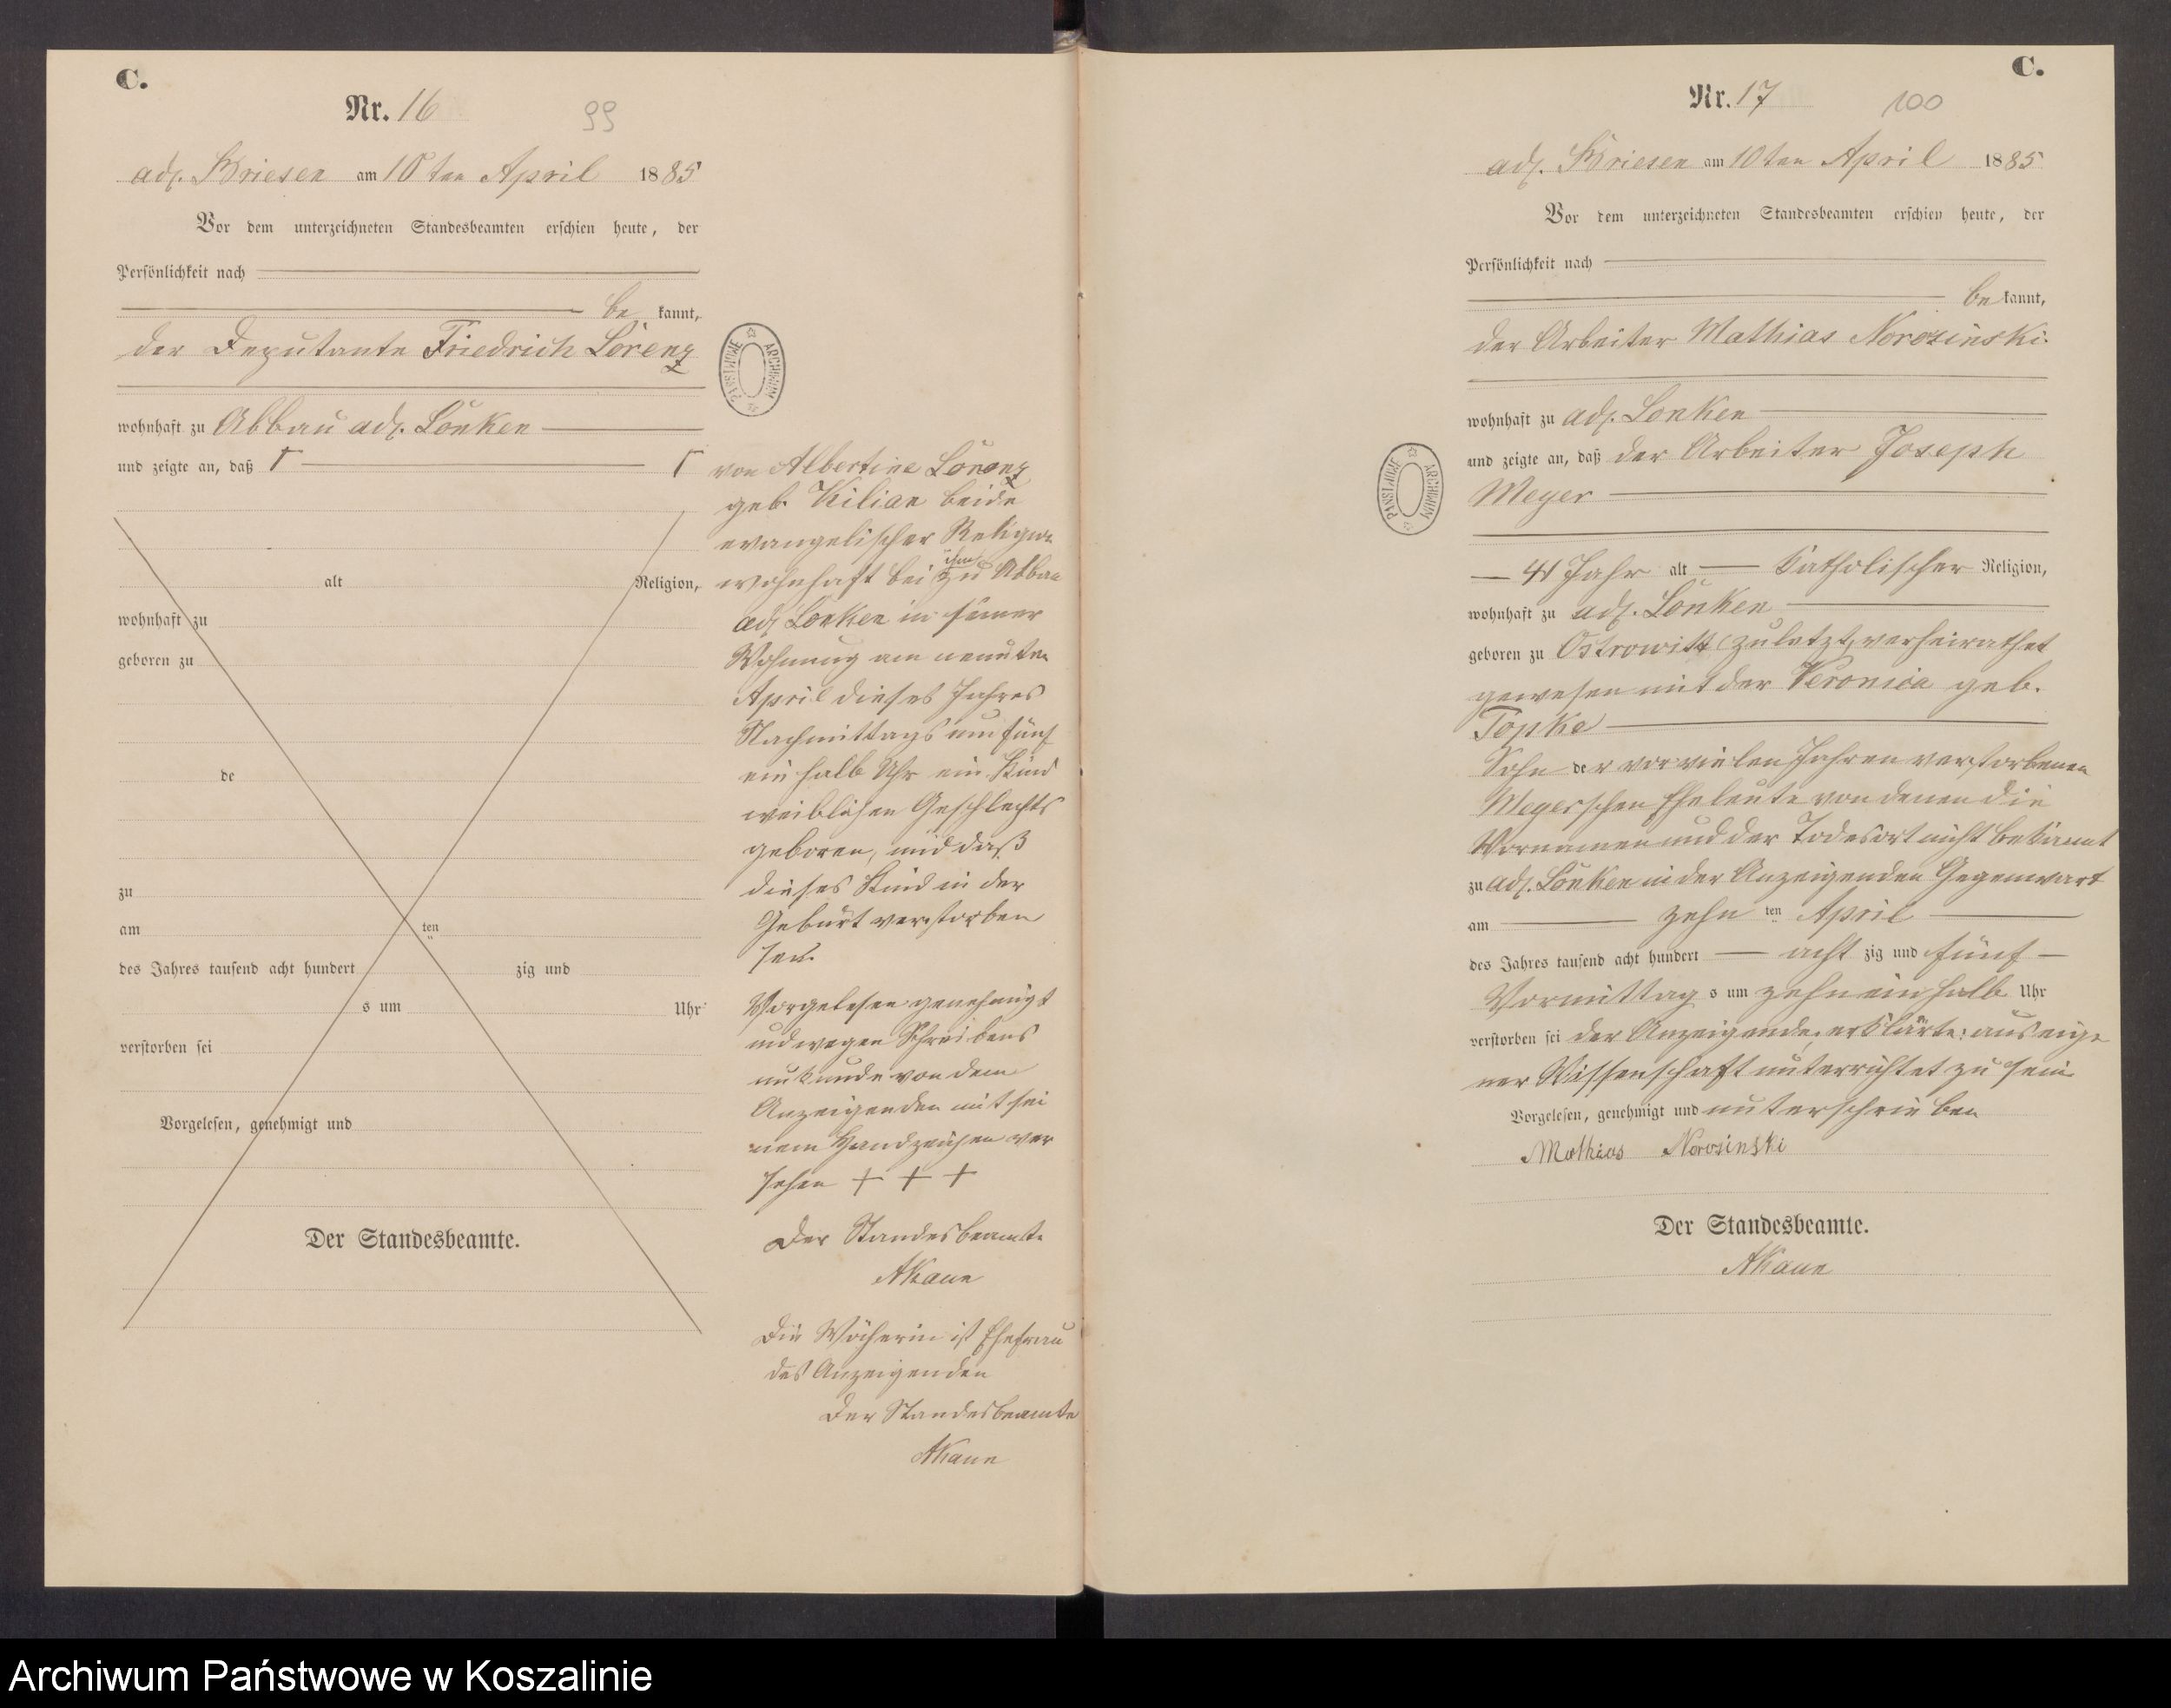 C.
Nr. 16
99
adl. Briesen am 10ten April 1885
Vor dem unterzeichneten Standesbeamten erschien heute, der
Persönlichkeit nach
be kannt,
der Deputante Friedrich Lorenz
wohnhaft zu Abbau adl. Lonken
und zeigte an, daß
alt Religion,
wohnhaft zu
geboren zu
de
zu
am ten
des Jahres tausend acht hundert zig und
s um Uhr
verstorben sei
Vorgelesen, genehmigt und
Der Standesbeamte.
PANSTWOWE ARCHIWUM
von Albertine Lorenz
geb. Kilian beide
evangelischer Religion
wohnhaft bei ihm zu Abbau
adl Lonken in seiner
Wohnung am neunten
April dieses Jahres
Nachmittags um fünf
ein halb Uhr ein Kind
weiblichen Geschlechts
geboren, und daß
dieses Kind in der
Geburt verstorben
sei.
Vorgelesen genehmigt
und wegen Schreibens
unkunde von dem
Anzeigenden mit sei
nem Handzeichen ver
sehen + + +
Der Standesbeamte
AKaun
Die Wöcherin ist Ehefrau
des Anzeigenden
Der Standesbeamte
AKaun
C.
Nr. 17
100
adl. Briesen am 10ten April 1885
Vor dem unterzeichneten Standesbeamten erschien heute, der
Persönlichkeit nach
be kannt,
der Arbeiter Mathias Norosinski
wohnhaft zu adl. Lonken
und zeigte an, daß der Arbeiter Joseph
Meyer
41 Jahr alt Katholischer Religion,
wohnhaft zu adl. Lonken
geboren zu Ostrowitt zuletzt verheirathet
gewesen mit der Veronica geb.
Topka
Sohn der vor vielen Jahren verstorbenen
Meyerschen Eheleute von denen die
Vornamen und der Todesort nicht bekannt
zu adl. Lonken in der Anzeigenden Gegenwart
am zehn ten April
des Jahres tausend acht hundert acht zig und fünf
Vormittag s um zehn ein halb Uhr
verstorben sei der Anzeigende, erklärte: aus eige
ner Wissenschaft unterrichtet zu sein
Vorgelesen, genehmigt und unterschrieben
Mathias Norosinski
Der Standesbeamte.
AKaun
PANSTWOWE ARCHIWUM
Archiwum Państwowe w Koszalinie